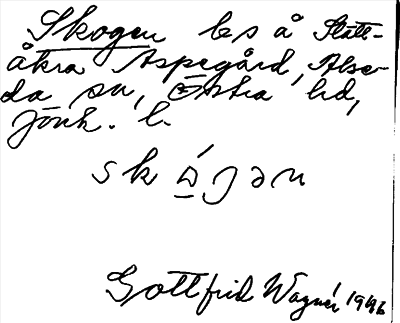 Skogen ls å Slätt-
åkra Aspegård, Alse-
da sn, Östra hd,
Jönk. l.
skɷ́gən
Gottfrid Wagnér 1946